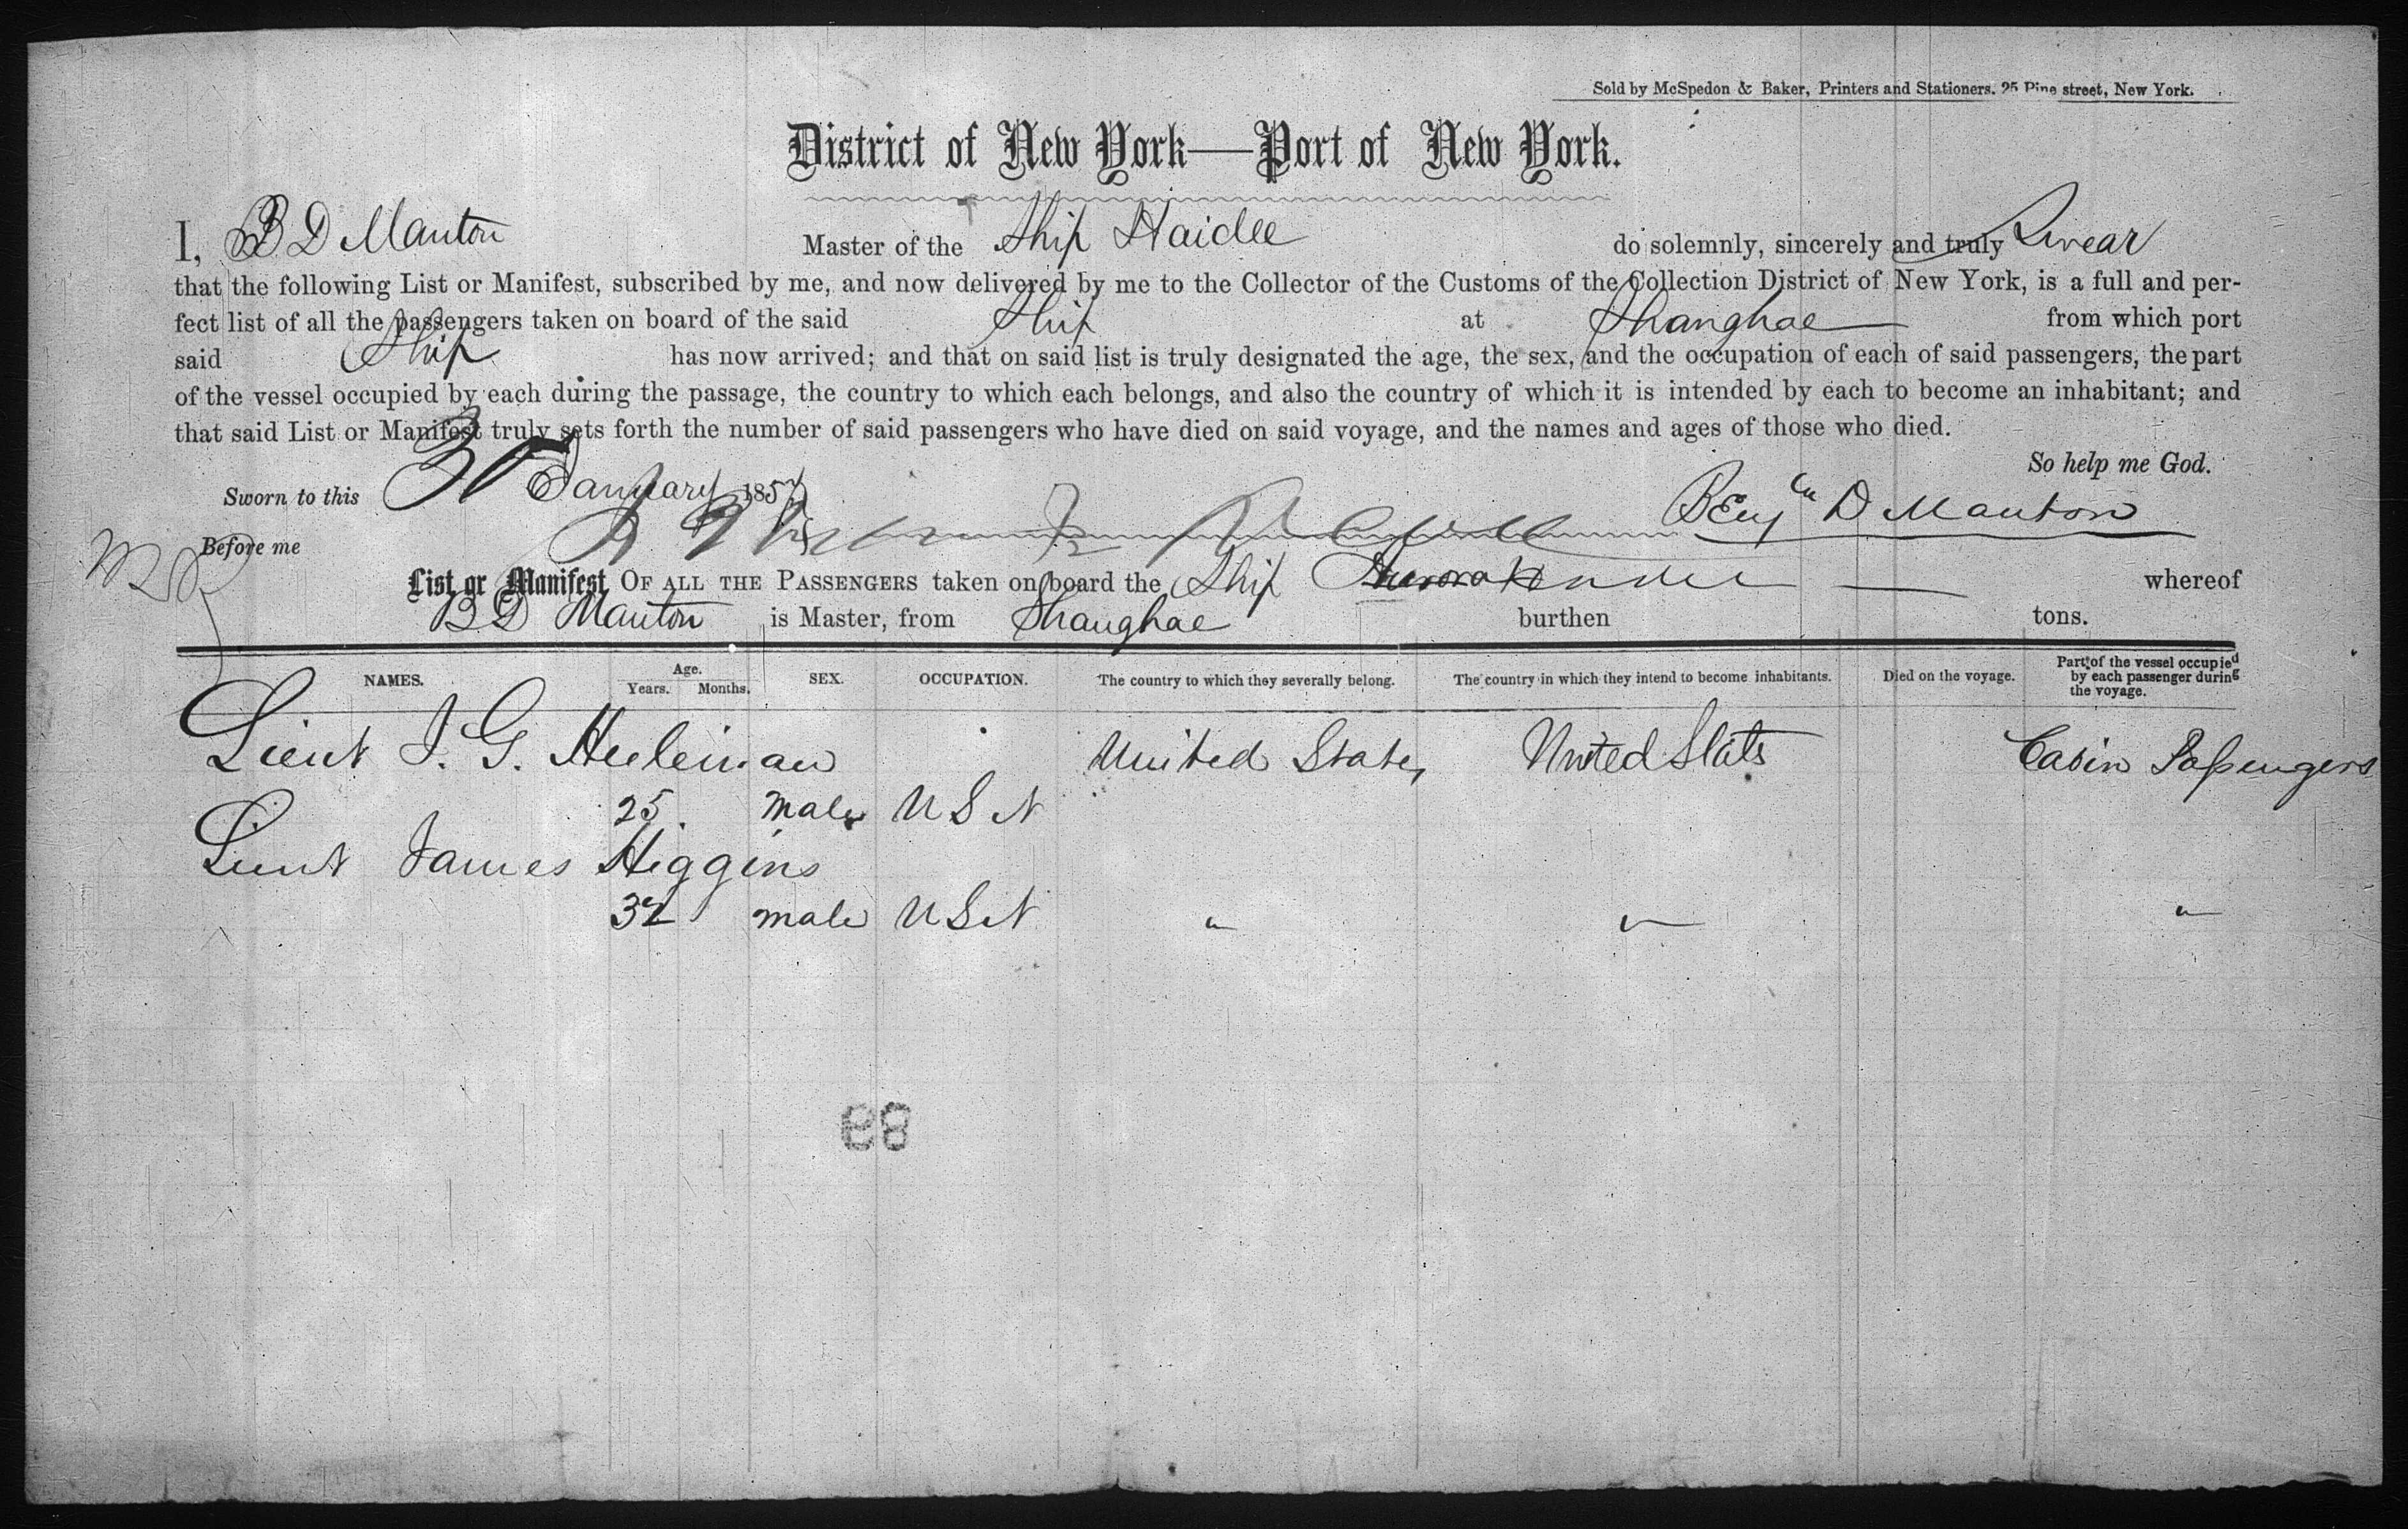 Sold by McSpedon & Baker, Printers and Stationers. 25 Pine street, New York.
District of New York—Port of New York.
I, B D Manton Master of the Ship Haidee do solemnly, sincerely and truly Swear
that the following List or Manifest, subscribed by me, and now delivered by me to the Collector of the Customs of the Collection District of New York, is a full and per-
fect list of all the passengers taken on board of the said Ship at Shanghae from which port
said Ship has now arrived; and that on said list is truly designated the age, the sex, and the occupation of each of said passengers, the part
of the vessel occupied by each during the passage, the country to which each belongs, and also the country of which it is intended by each to become an inhabitant; and
that said List or Manifest truly sets forth the number of said passengers who have died on said voyage, and the names and ages of those who died.
So help me God.
Sworn to this 30 January 1857
Benjn D Manton
Before me
List or Manifest OF ALL THE PASSENGERS taken on board the Ship Haidee whereof
B D Manton is Master, from Shanghae burthen tons.
NAMES. Age. Years. Months. SEX. OCCUPATION. The country to which they severally belong. The country in which they intend to become inhabitants. Died on the voyage. Part of the vessel occupied by each passenger during the voyage.
Lieut J. G. United States United States Cabin Passengers
25. male U S N
Lieut James Higgins
32 male U S N " " "
89